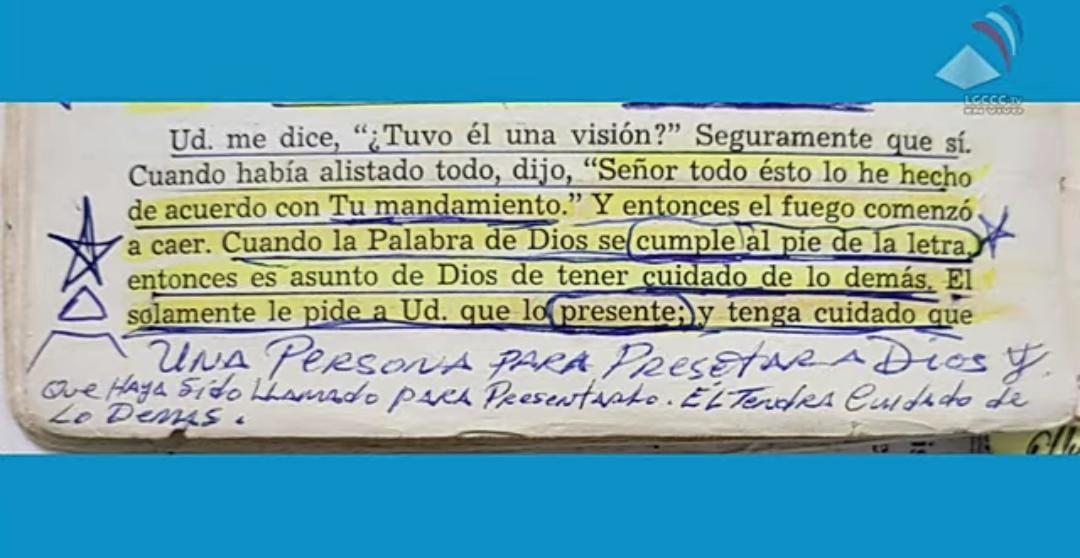 LGCCC.TV
EN VIVO
Ud. me dice, “¿Tuvo él una visión?” Seguramente que sí.
Cuando había alistado todo, dijo, “Señor todo ésto lo he hecho
de acuerdo con Tu mandamiento.” Y entonces el fuego comenzó
a caer. Cuando la Palabra de Dios se cumple al pie de la letra,
entonces es asunto de Dios de tener cuidado de lo demás. El
solamente le pide a Ud. que lo presente; y tenga cuidado que
UNA PERSONA PARA PRESETAR A DIOS Y.
QUE HAYA SIDO LLAMADO PARA PRESENTARLO. ÉL TENDRA CUIDADO DE
LO DEMAS.